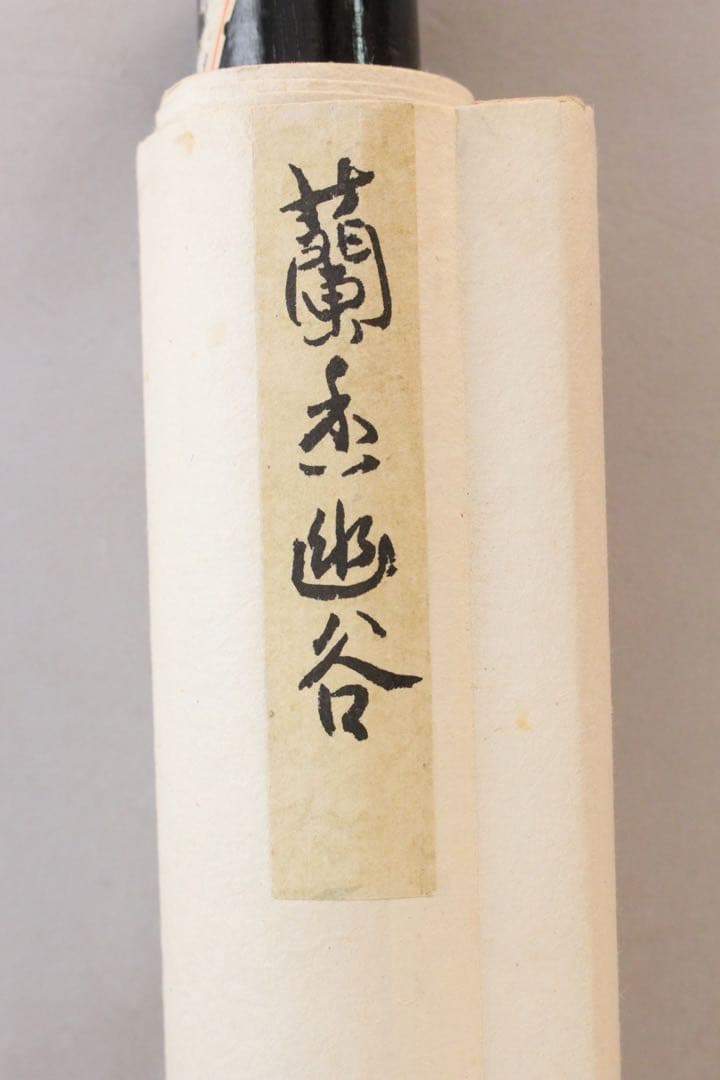 蘭香幽谷